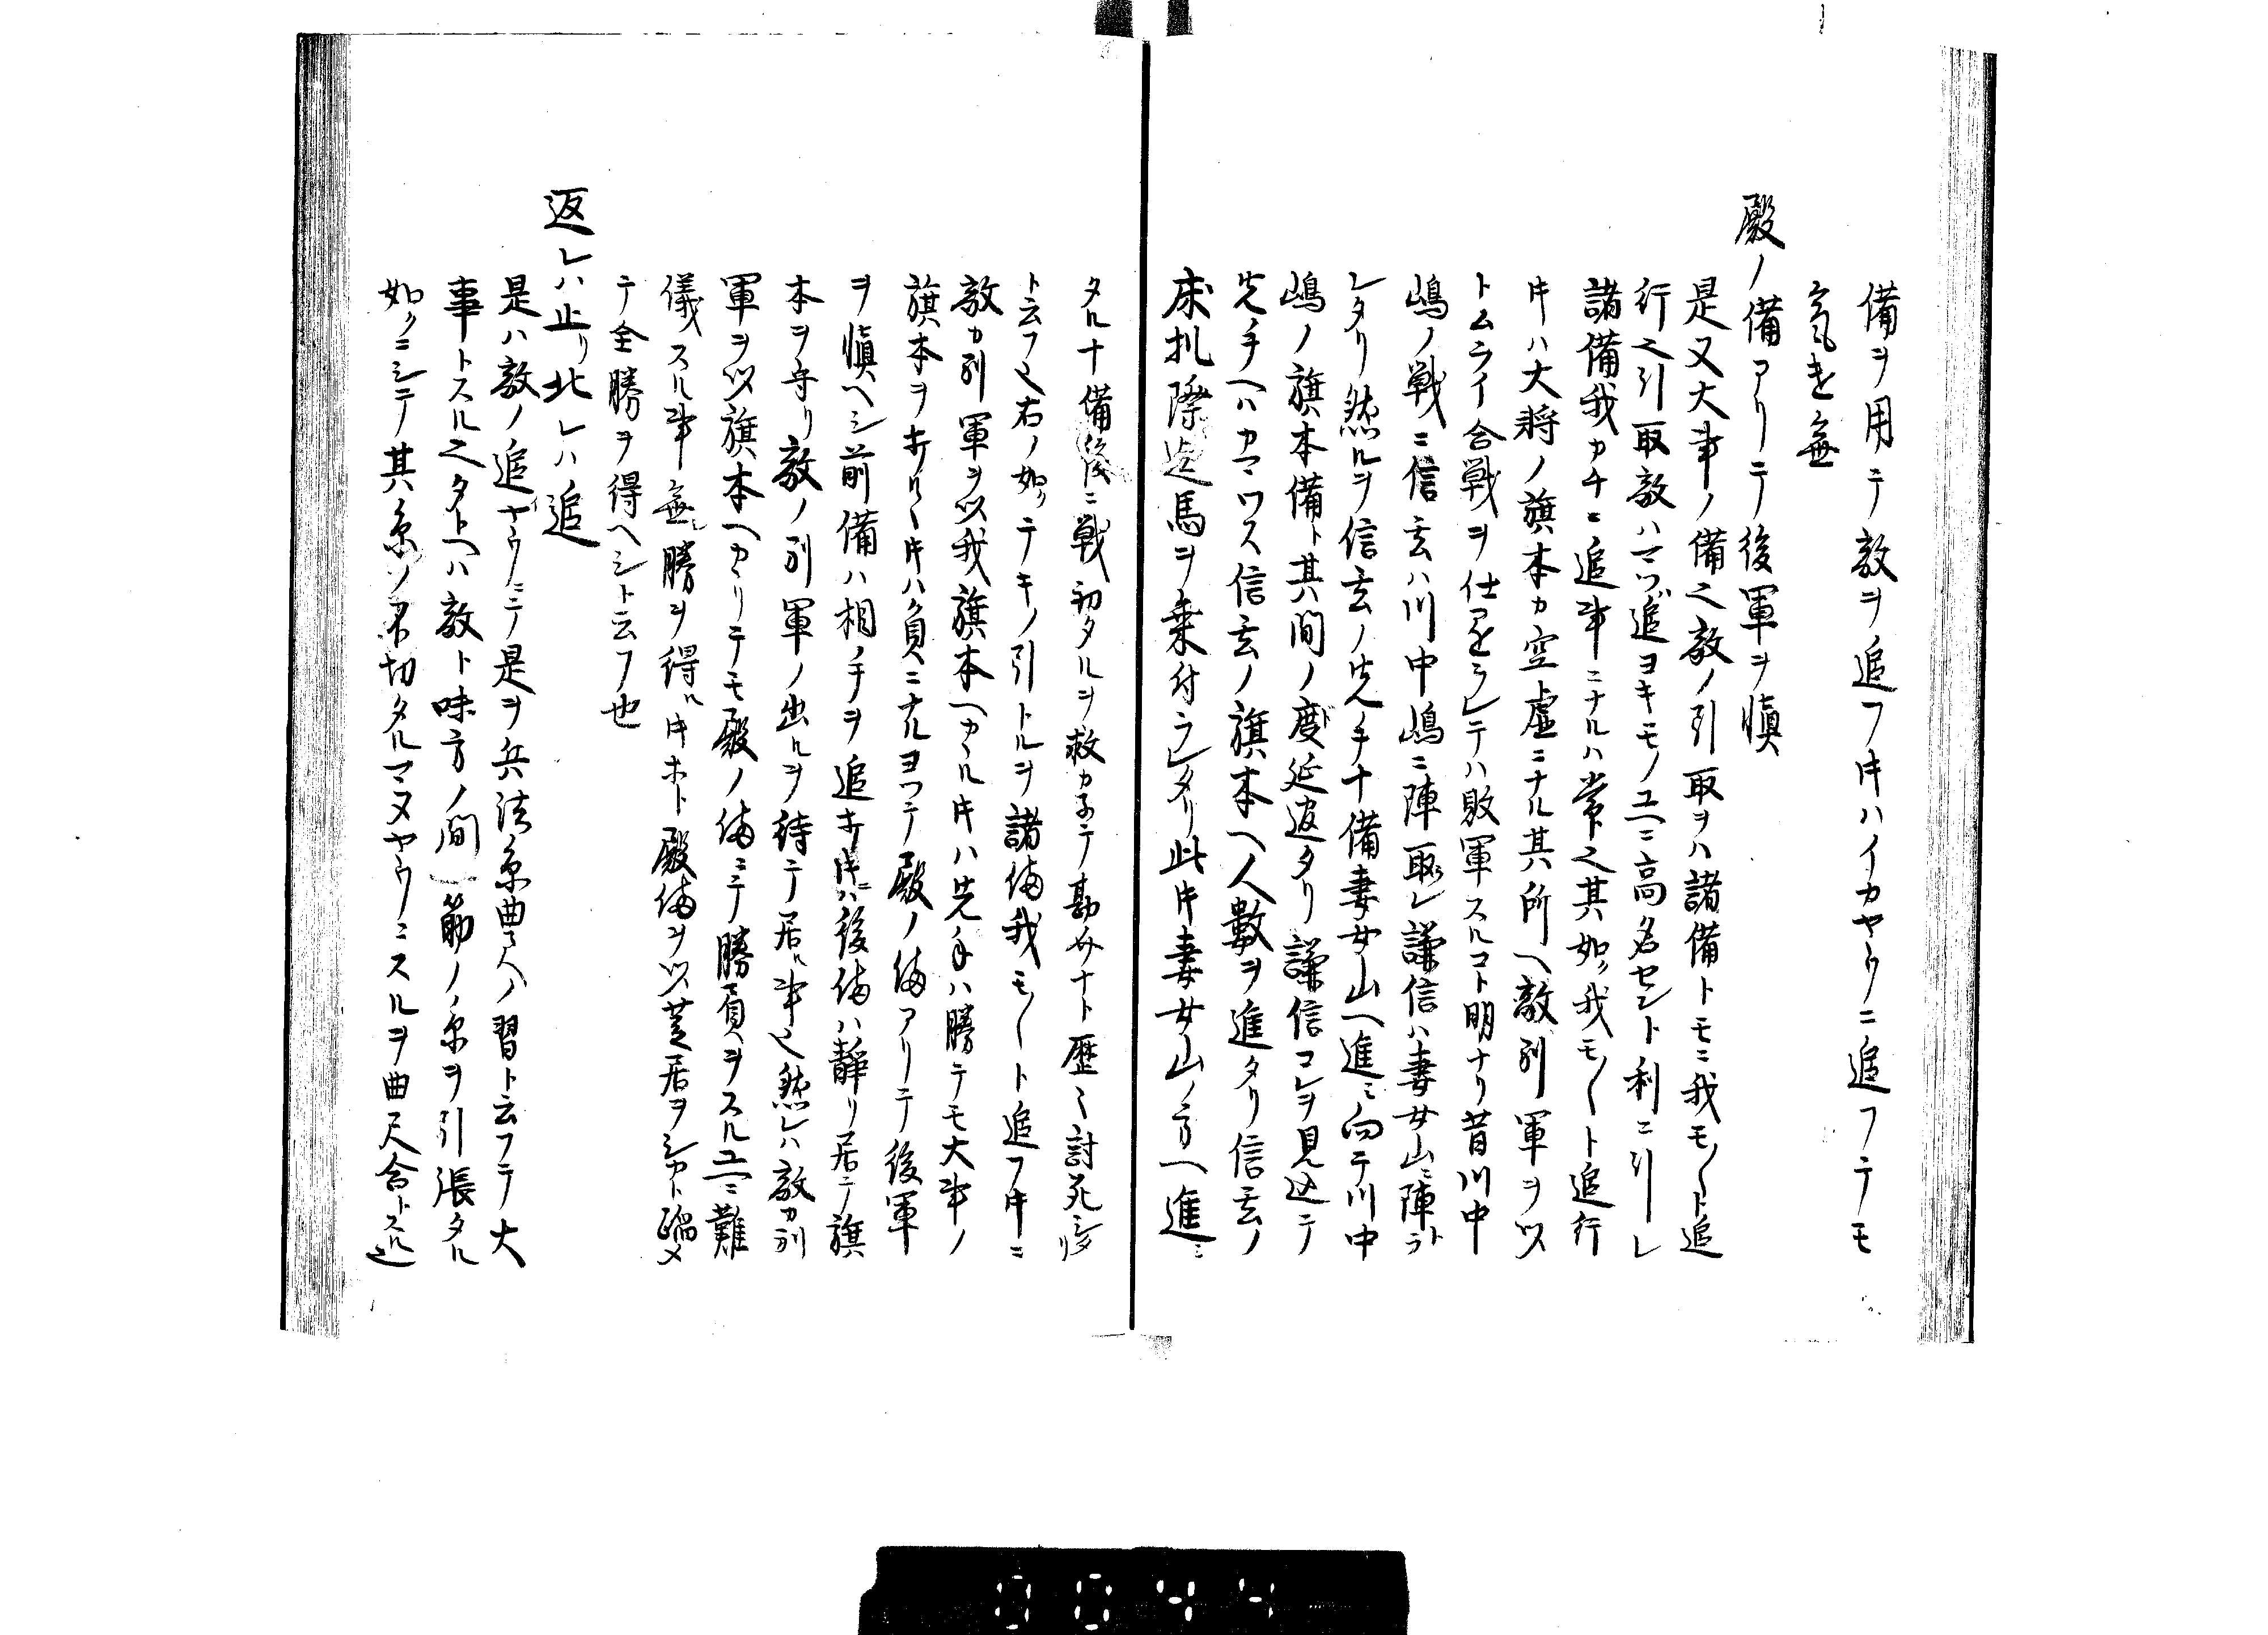 備ヲ用テ敵ヲ追フ𪜈ハイカヤウニ追フテモ
気遣無
殿ノ備アリテ後軍ヲ慎
是又大事ノ備也敵ノ引取ヲハ諸備トモニ我モ〳〵ト追
行也引取敵ハマヅ追ヨキモノユヘニ高名セント利ニ引レ
諸備我カチニ追事ニナルハ常ト也其如ク我モ〳〵ト追行
𪜈ハ大将ノ旗本カ空虚ニナル其所ヘ敵別軍ヲ以
トムライ合戦ヲ仕ラレテハ敗軍スルコト明ナリ昔川中
嶋ノ戦ニ信玄ハ川中嶋ニ陣取レ謙信ハ妻女山ニ陣トラ
レタリ然ルヲ信玄ノ先手十備妻女山ヘ進ミ向テ川中
嶋ノ旗本備ト其間ノ度延過タリ謙信コレヲ見込テ
先手ヘハカマワス信玄ノ旗本ヘ人數ヲ進タリ信玄ノ
床机際迄馬ヲ乗付ラレタリ此𪜈妻女山ノ方ヘ進ミ
タル十備後ニ戦初タルヲ救カネテ勘介ナト歴〻討死シタリ
ト云フ也右ノ如クテキノ引トルヲ諸備我モ〳〵ト追フ𪜈ニ
敵カ別軍ヲ以我旗本ヘカヽル𪜈ハ先手ハ勝テモ大事ノ
旗本ヲキラルヽ𪜈ハ負ニナルヨツテ殿ノ備アリテ後軍
ヲ慎ヘシ前備ハ相手ヲ追キ𪜈ハ後備ハ静リ居テ旗
本ヲ守リ敵ノ別軍ノ出ルヲ待テ居ル事也然レハ敵カ別
軍ヲ以旗本ヘカヽリテモ殿ノ備ニテ勝負ヲスルユヘニ難
儀スル事無シ勝ヲ得ル𪜈ホト殿備ヲ以芝居ヲシカト蹈メ
テ全勝ヲ得ヘシト云フ也
返レハ止リ北レハ追
是ハ敵ノ追ヤウニテ是ヲ兵法糸曲尺ノ習ト云フテ大
事トスル也タトヘハ敵ト味方ノ間一筋ノ糸ヲ引張タル
如クニシテ其糸ノ不切タルマヌヤウニスルヲ曲尺合トスル也